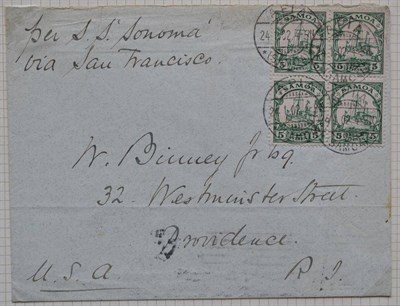 per S.S. 'Sonoma'
via San Francisco.
SAMOA SAMOA
5 5 5 5
SAMOA SAMOA
5 5 5 5
W. Binney Jr Esq.
32. Westminster Street.
Providence.
U.S.A R.I.